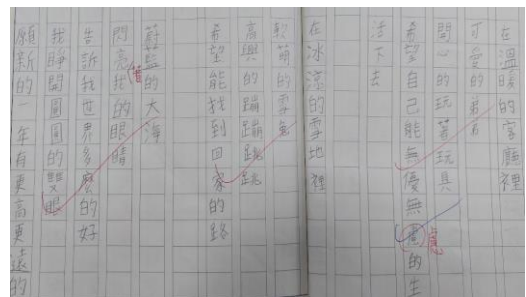 在溫暖的家庭裡
可愛的弟弟
開心的玩著玩具
希望自己能無優無慮的生
慮
活下去
在冰涼的雪地裡
軟萌的雪兔
高興的蹦蹦跳跳
希望能找到回家的路
蔚藍的大海
閃亮我的眼睛
著
告訴我世界多麼的好
我睜開圓圓的雙眼
願新的一年有更高更遠的